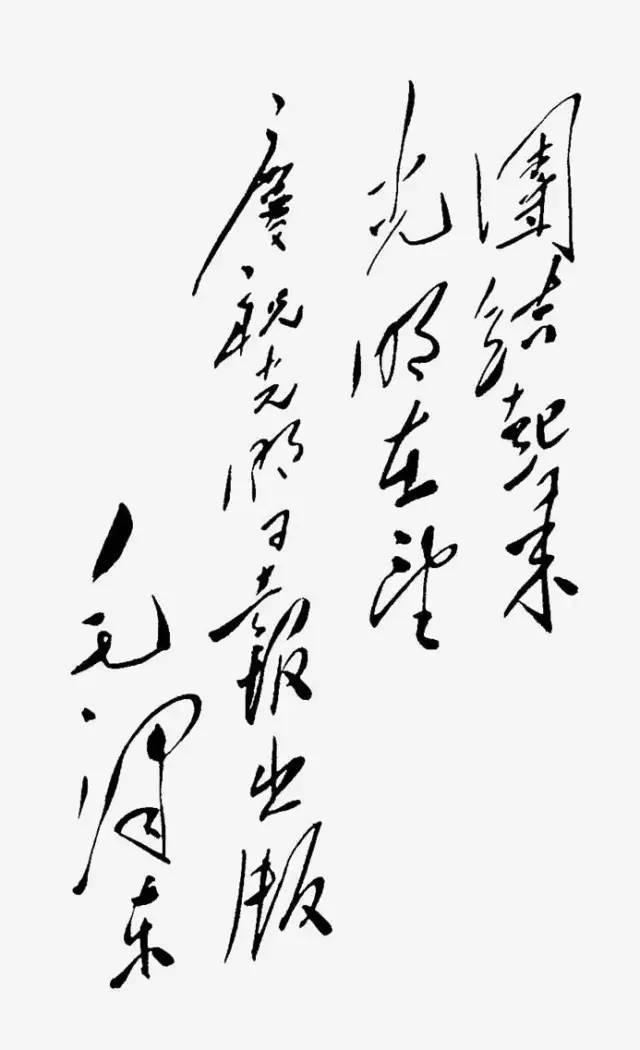 團结起來
光明在望
慶祝光明日報出版
毛澤东